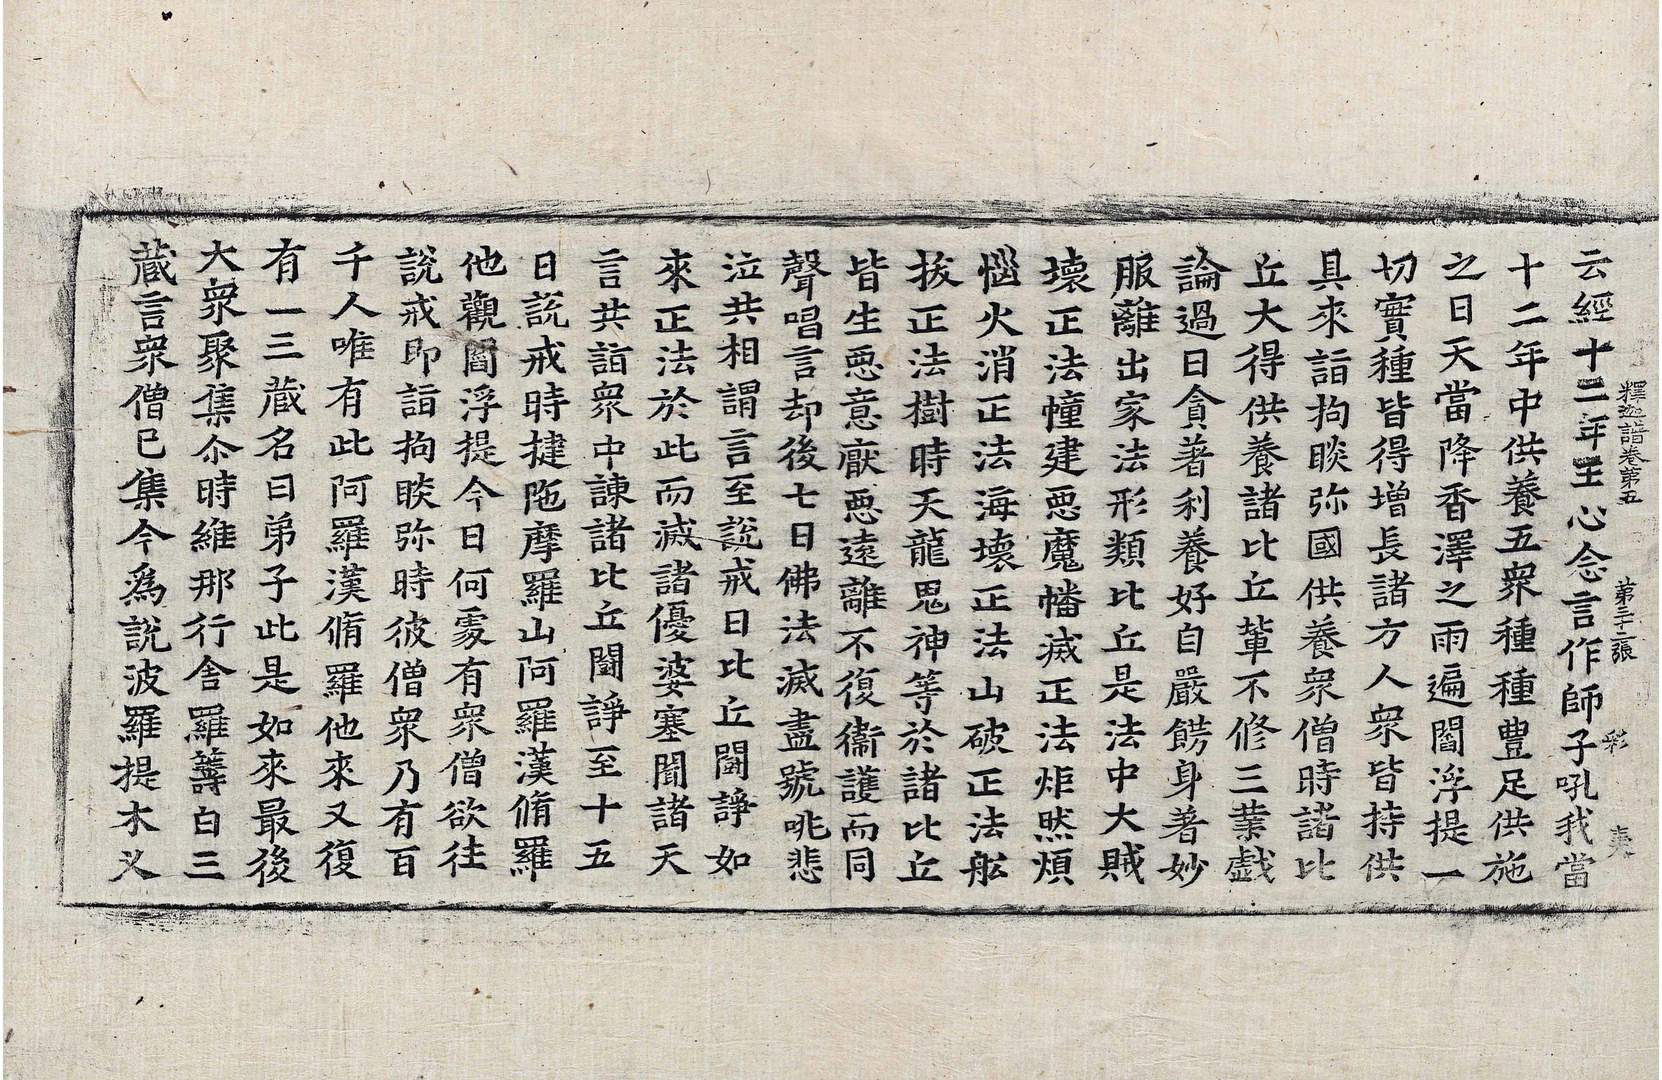 釋迦譜卷第五 第三十二張 彩 夫
云經十二年王心念言作師子吼我當
十二年中供養五衆種種豊足供施
之日天當降香澤之雨遍閻浮提一
切實種皆得增長諸方人衆皆持供
具來詣拘睒弥國供養衆僧時諸比
丘大得供養諸比丘輩不修三業戲
論過日貪著利養好自嚴餝身著妙
服離出家法形類比丘是法中大賊
壞正法幢建惡魔幡滅正法炬然煩
惱火消正法海壞正法山破正法舩
拔正法樹時天龍鬼神等於諸比丘
皆生惡意厭惡遠離不復衞護而同
聲唱言却後七日佛法滅盡號咷悲
泣共相謂言至說戒日比丘鬪諍如
來正法於此而滅諸優婆塞聞諸天
言共詣衆中諫諸比丘鬪諍至十五
日說戒時揵陁摩羅山阿羅漢脩羅
他觀閻浮提今日何處有衆僧欲往
說戒即詣拘睒弥時彼僧衆乃有百
千人唯有此阿羅漢脩羅他來又復
有一三藏名曰弟子此是如來最後
大衆聚集尒時維那行舍羅籌白三
藏言衆僧已集今爲說波羅提木义